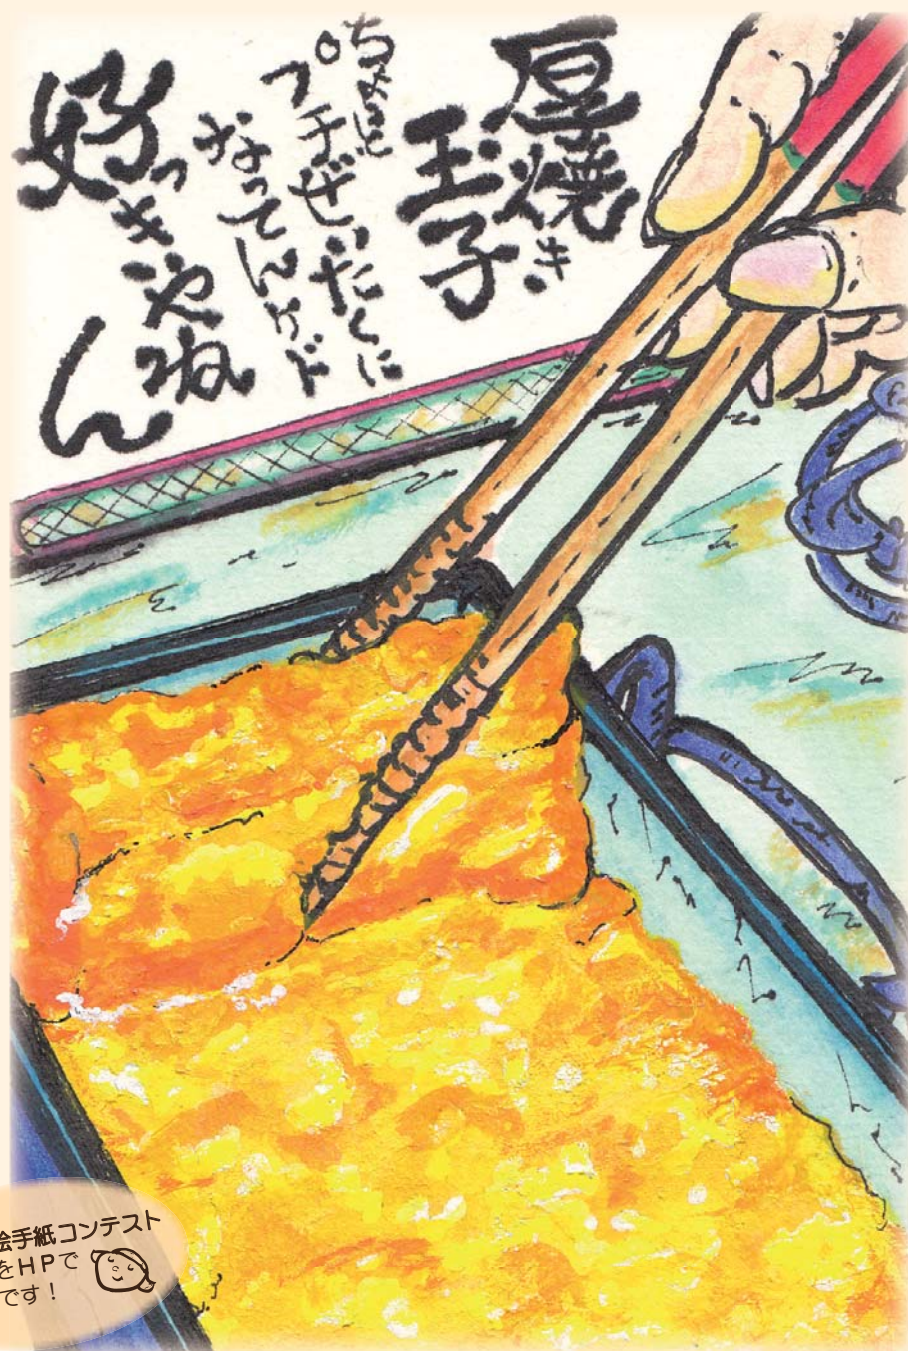 厚焼き
玉子
ちょっと
プチぜいたくに
なってんけど
好っきやねん
絵手紙コンテスト
をHPで
です！